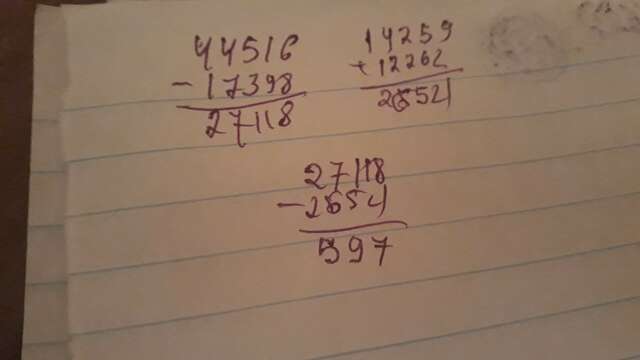 44516
- 17398
27118
14259
+ 12262
26521
27118
- 26521
597